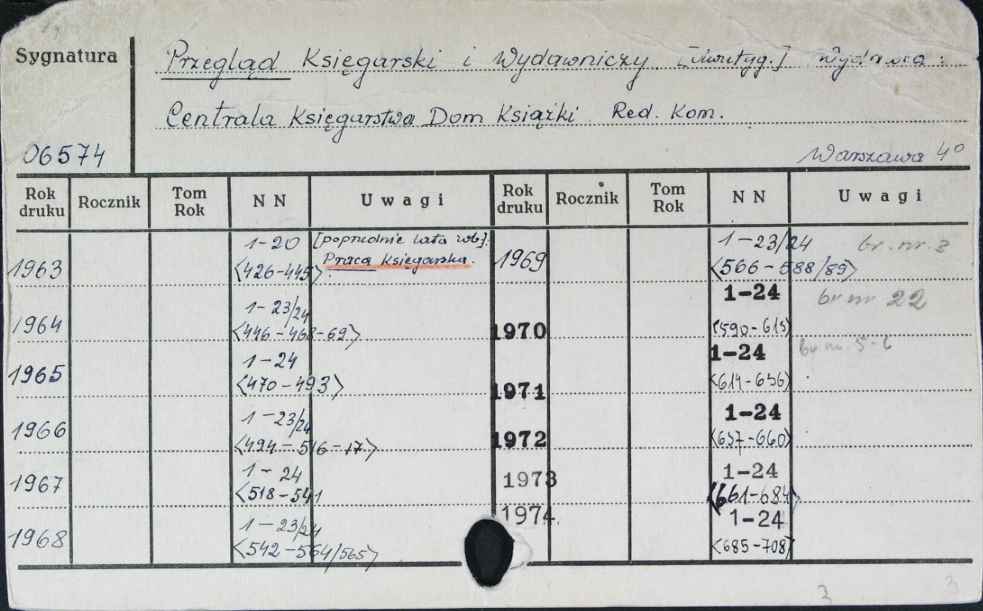 Sygnatura
Przegląd Księgarski i Wydawniczy [dwutyg.] Wydawca:
Centrala Księgarstwa Dom Książki Red. Kom.
06574
Warszawa 4°
Rok druku Rocznik Tom Rok N N Uwagi Rok druku Rocznik Tom Rok N N Uwagi
1963 1-20 <426-445> [poprzednie lata zob]. Praca Księgarska.
1964 1-23/24 <446-468-69>
1965 1-24 <470-493>
1966 1-23/24 <494-516-17>
1967 1-24 <518-541
1968 1-23/24 <542-564/565>
1969 1-23/24 <566-588/89> br. nr. 2
1970 1-24 <590-613> br nr 22
1971 1-24 <614-636> br. nr. 5-6
1972 1-24 <637-660>
1973 1-24 <661-684>
1974. 1-24 <685-708>
3
3